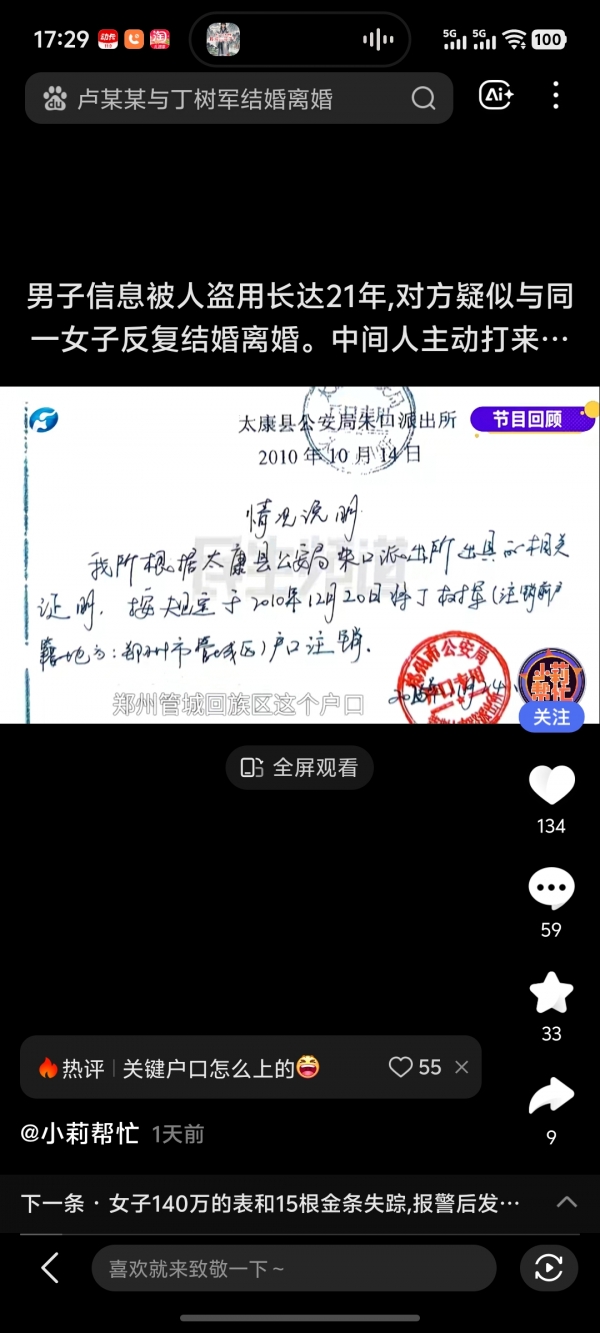 17:29
5G 5G 100
卢某某与丁树军结婚离婚
Ai
男子信息被人盗用长达21年,对方疑似与同
一女子反复结婚离婚。中间人主动打来…
太康县公安局朱口派出所
节目回顾
2010 年 10 月 14 日
情况说明
我所根据太康县公安局朱口派出所出具的相关
证明,按规定于2010年12月20日将丁树军(注销前户
籍地为:郑州市管城区)户口注销.
民生频道
郑州市公安局
户口专用
小莉帮忙
郑州管城回族区这个户口
关注
全屏观看
134
59
33
热评 关键户口怎么上的😆
55
9
@小莉帮忙 1天前
下一条 · 女子140万的表和15根金条失踪,报警后发…
喜欢就来致敬一下～